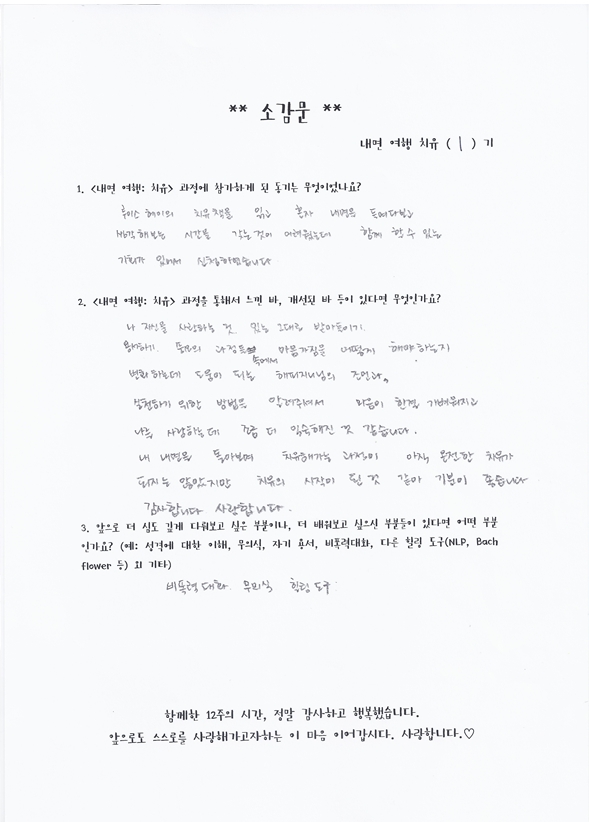 ** 소감문 **
내면 여행 치유 ( 1 ) 기
1. <내면 여행: 치유> 과정에 참가하게 된 동기는 무엇이었나요?
의 치유책을 읽고 혼자 내면을 들여다보고
생각해보는 시간을 갖는 것이 어려웠는데 함께 할 수 있는
기회가 있어서 신청하였습니다
2. <내면 여행: 치유> 과정을 통해서 느낀 바, 개선된 바 등이 있다면 무엇인가요?
나 자신을 사랑하는 것 있는 그대로 받아들이기.
용서하기. 과정들 속에서 마음가짐을 어떻게 해야하는지
변화하는데 도움이 되는 해피지나님의 조언과,
실천하기 위한 방법을 알려주셔서 마음이 한결 가벼워지고
나를 사랑하는데 조금 더 익숙해진 것 같습니다.
내 내면을 돌아보며 치유해가는 과정이 아직 온전한 치유가
되지는 않았지만 치유의 시작이 된 것 같아 기분이 좋습니다
감사합니다 사랑합니다.
3. 앞으로 더 심도 깊게 다뤄보고 싶은 부분이나, 더 배워보고 싶으신 부분들이 있다면 어떤 부분
인가요? (예: 성격에 대한 이해, 무의식, 자기 용서, 비폭력대화, 다른 힐링 도구(NLP, Bach
flower 등) 외 기타)
비폭력 대화. 무의식 힐링 도구.
함께한 12주의 시간, 정말 감사하고 행복했습니다.
앞으로도 스스로를 사랑해가고자하는 이 마음 이어갑시다. 사랑합니다.♡